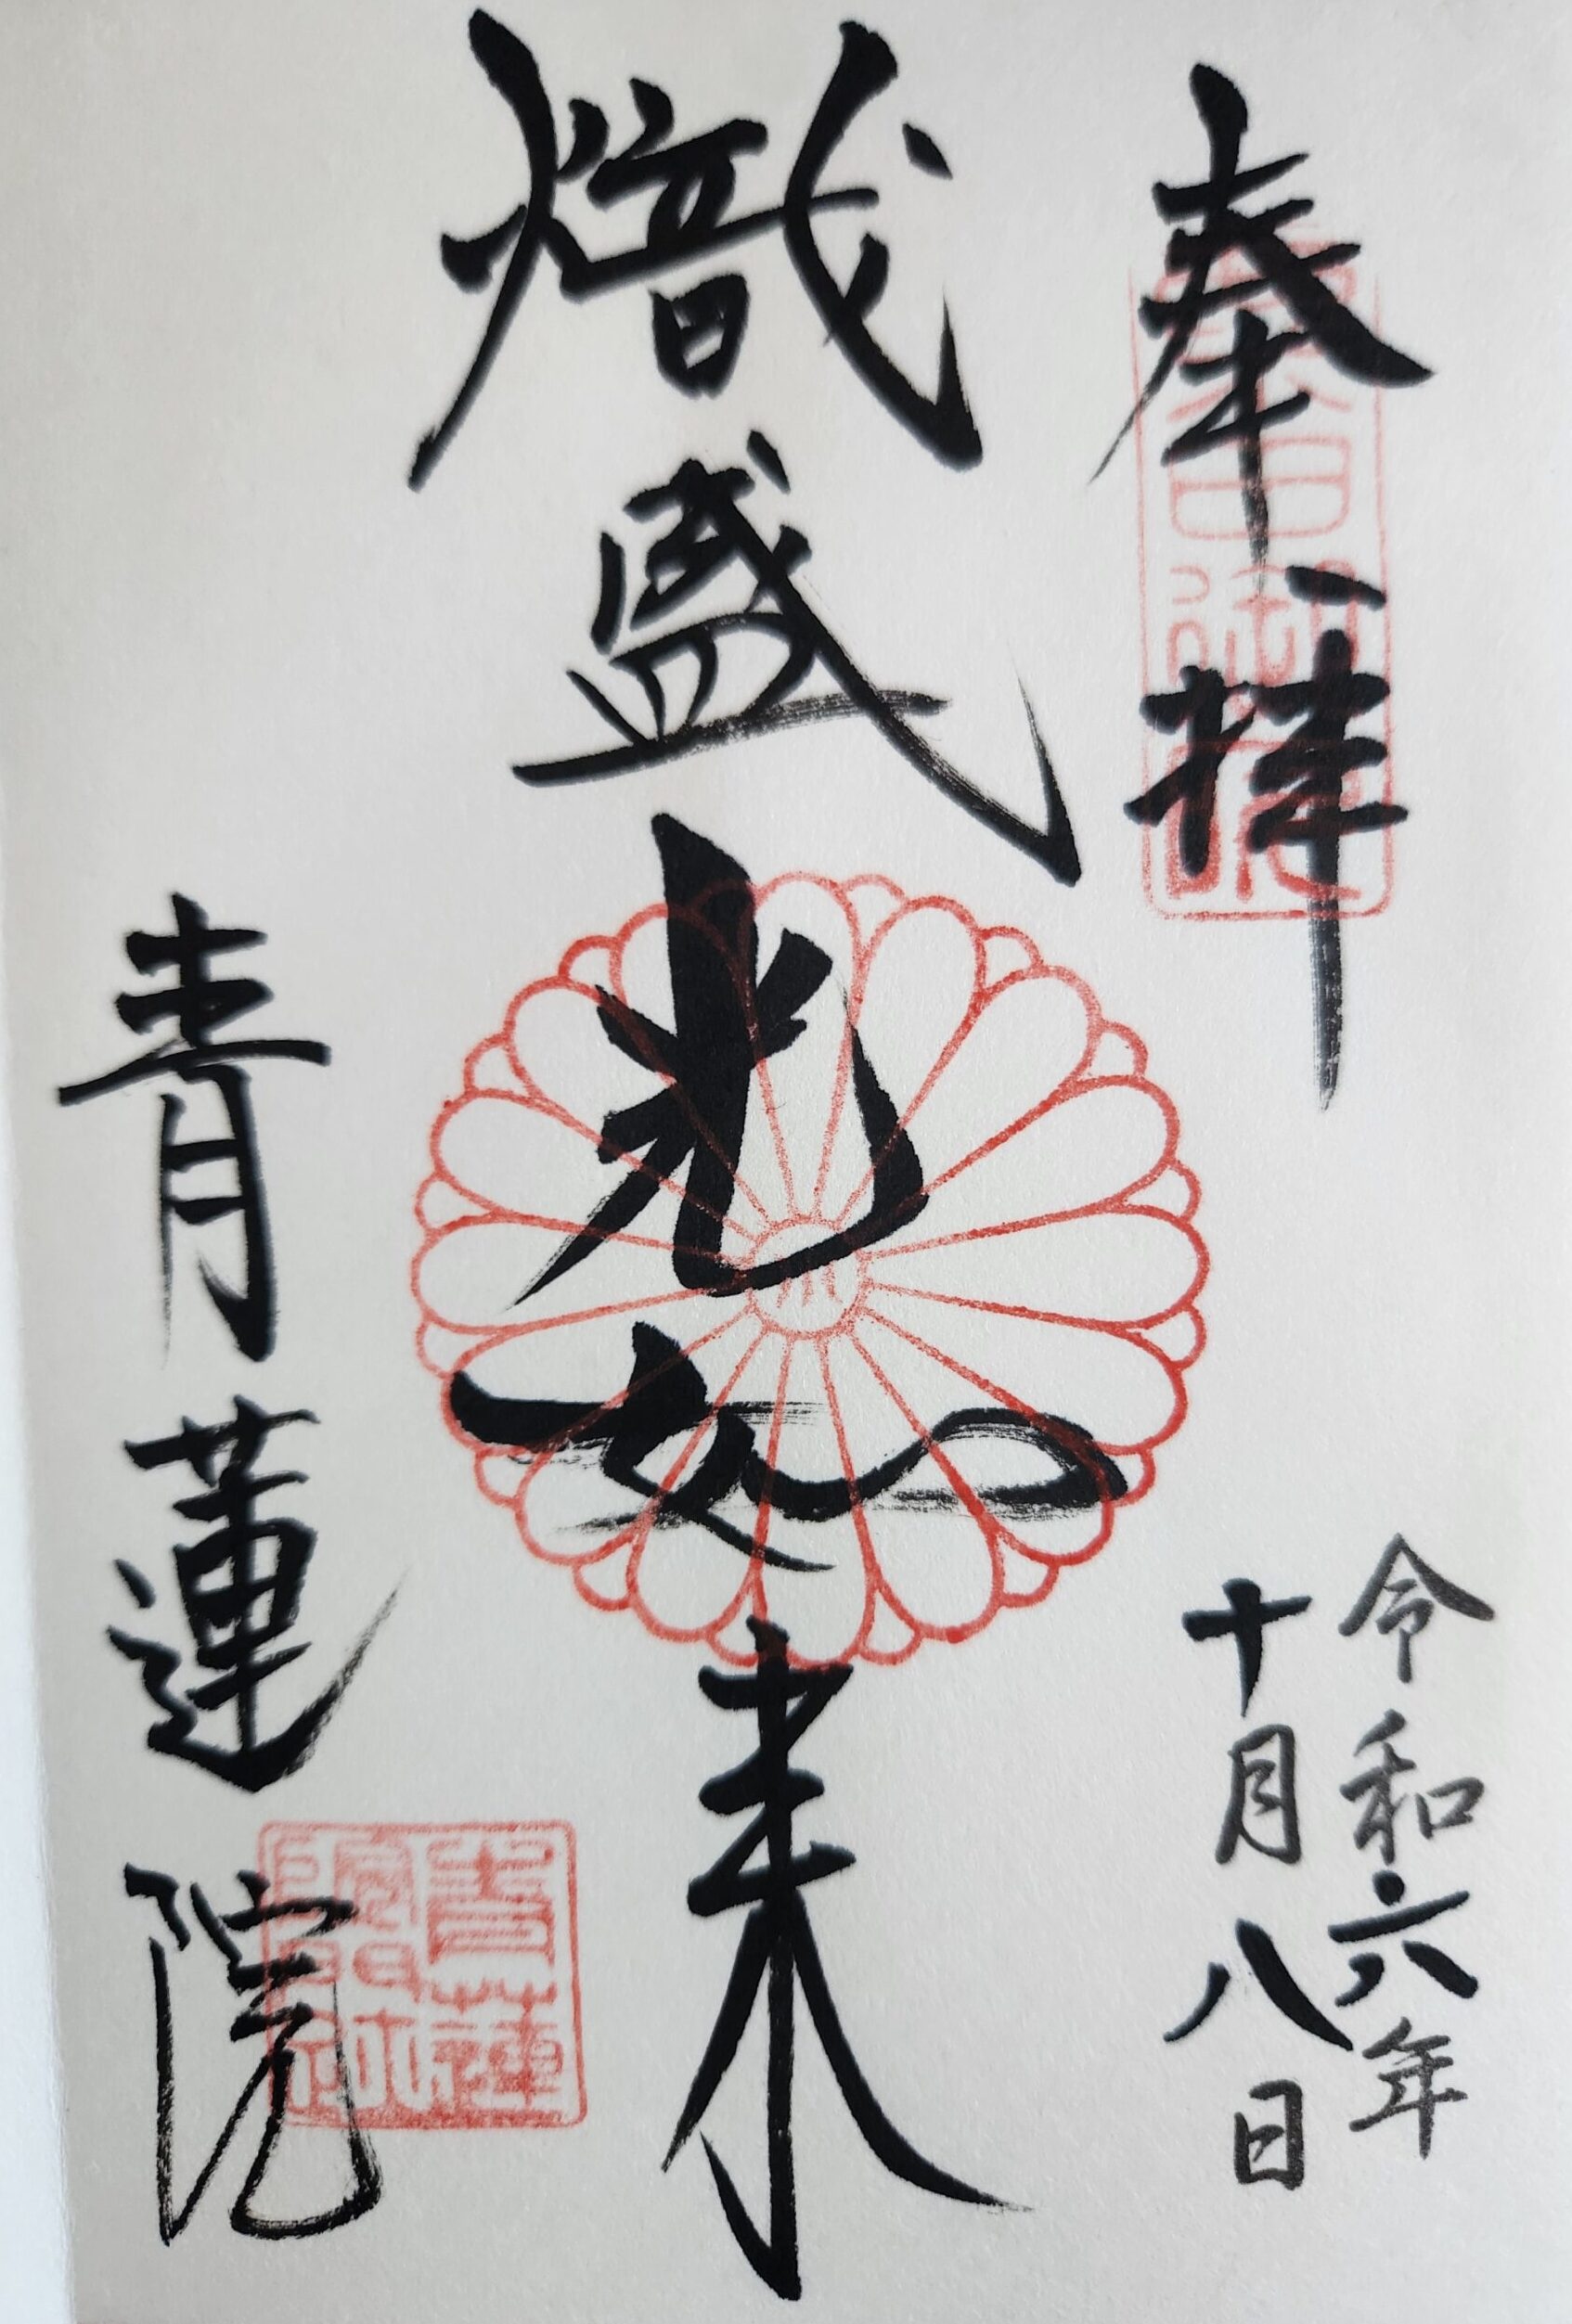 奉拝
令和六年
十月八日
熾盛光如来
青蓮院
青蓮